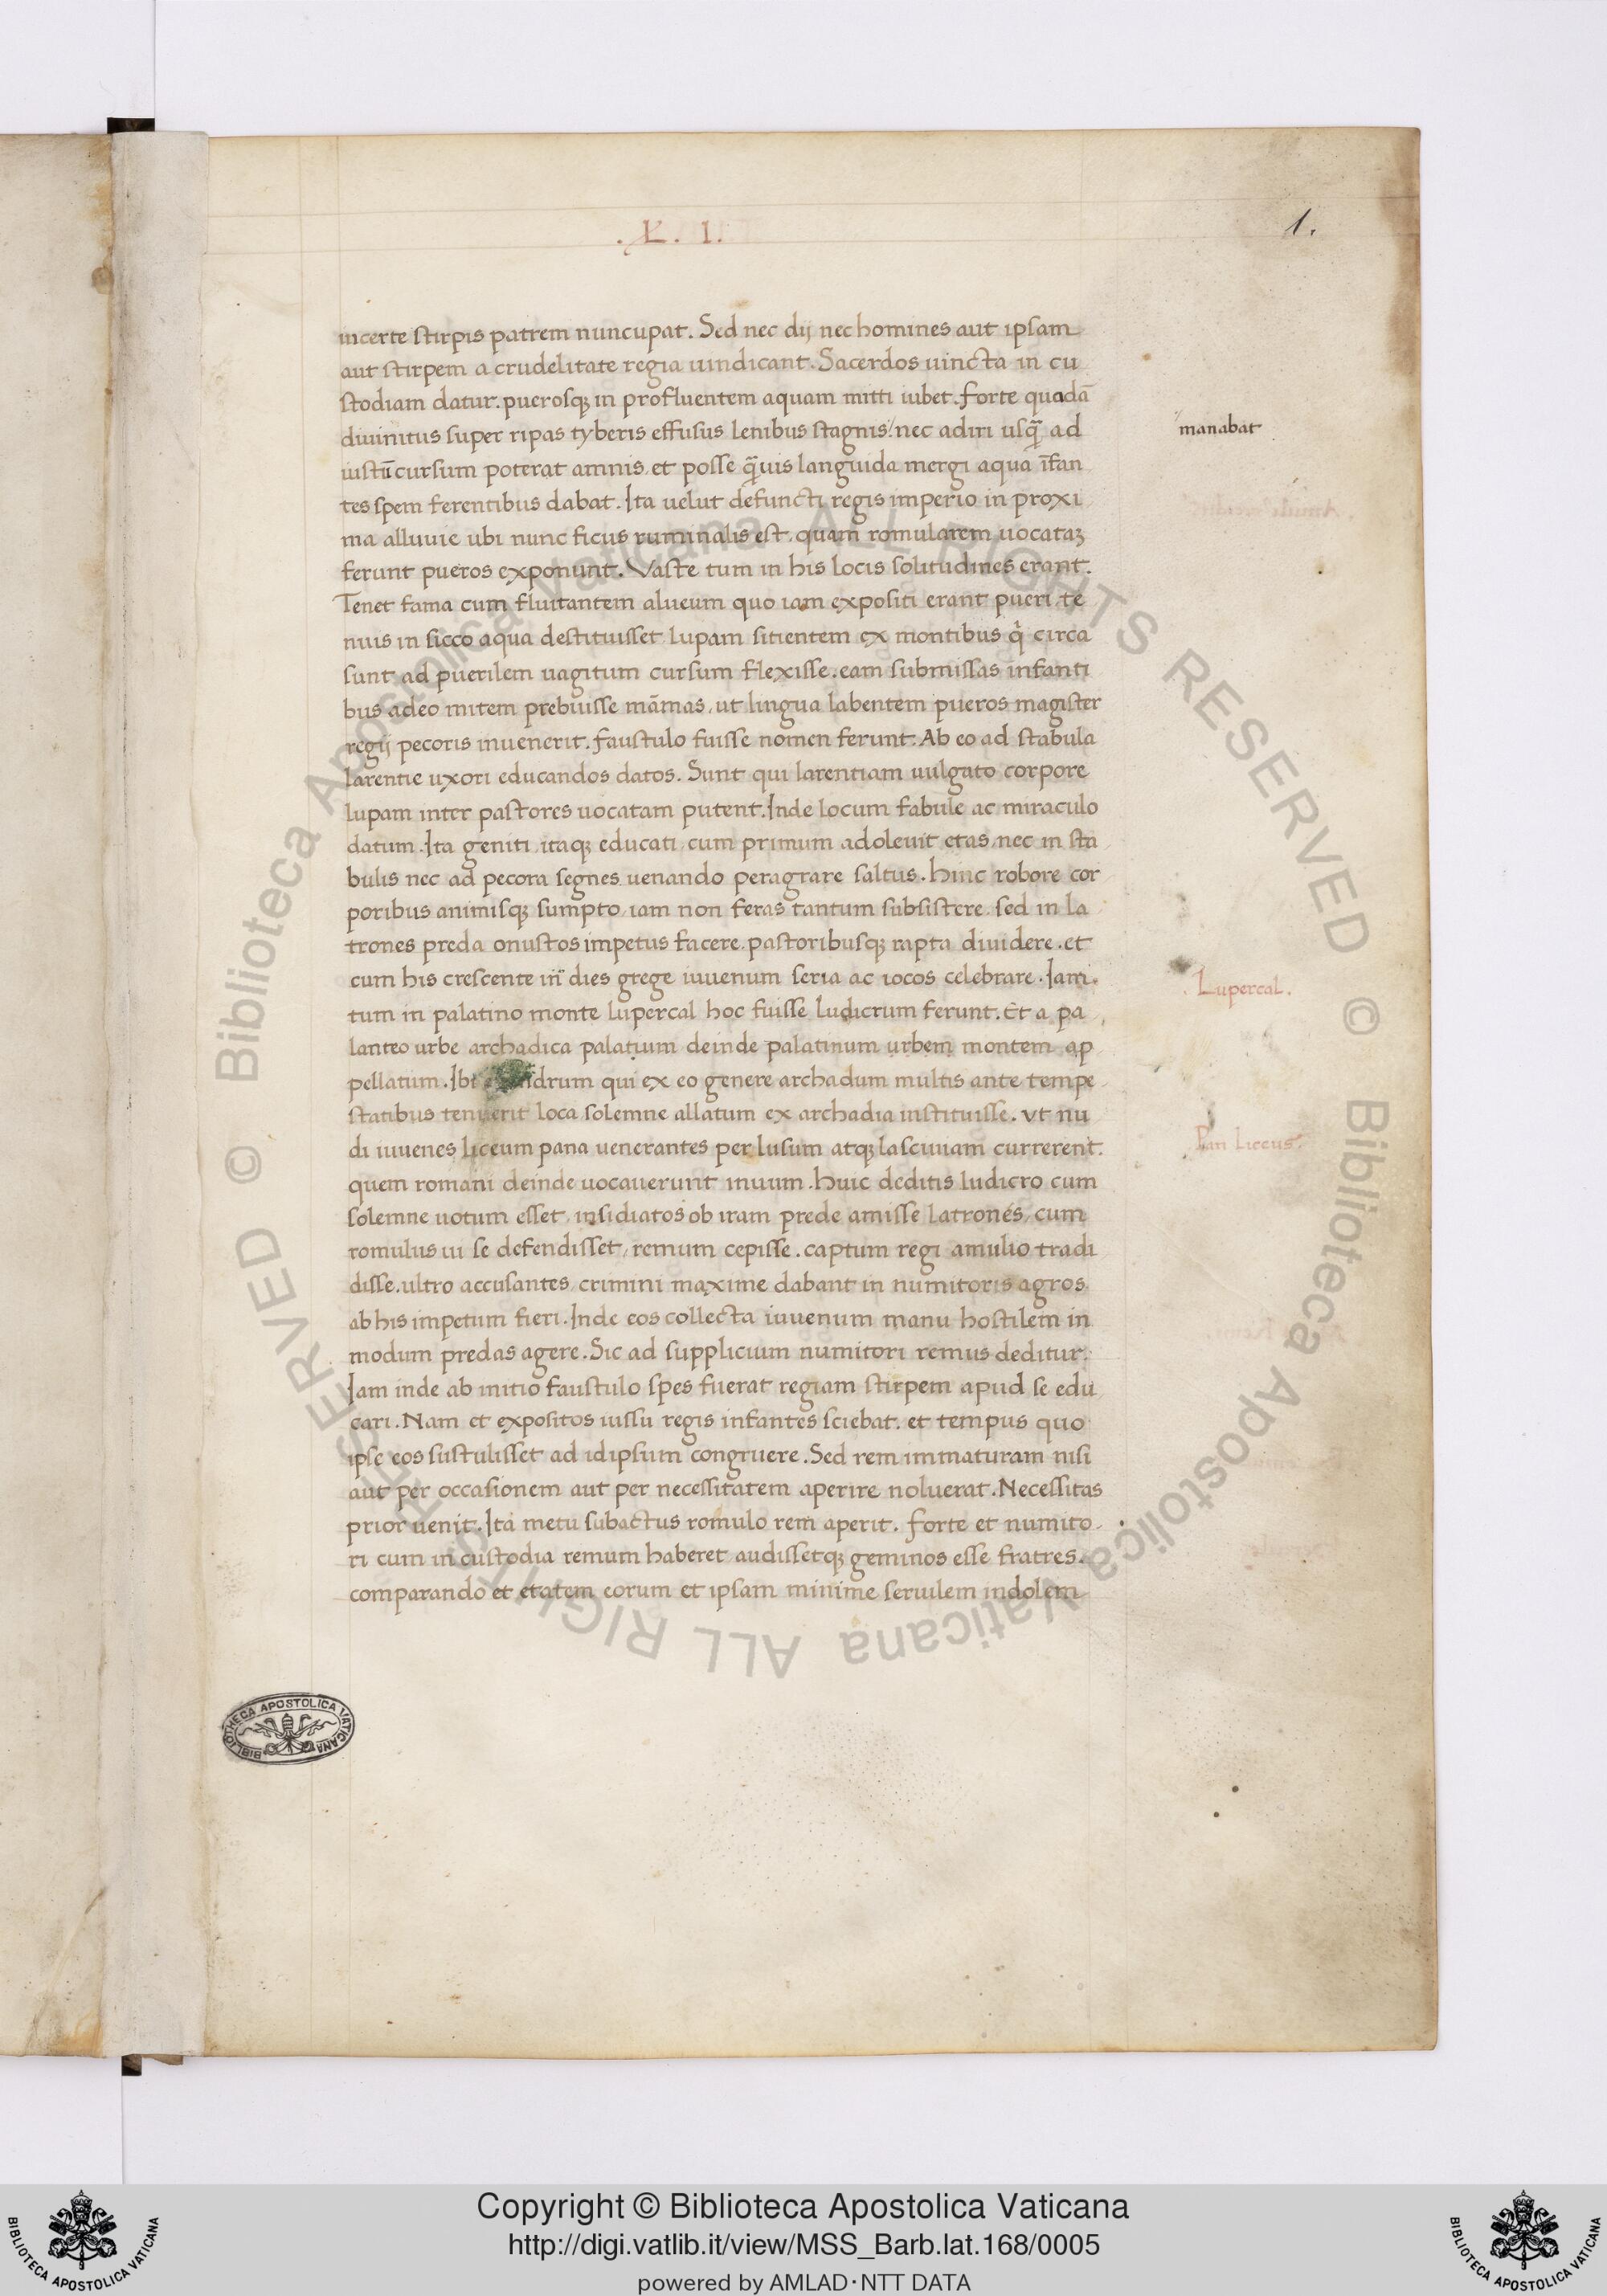 .L. I.
1.
incerte stirpis patrem nuncupat. Sed nec dij nec homines aut ipsam
aut stirpem a crudelitate regia uindicant. Sacerdos uincta in cu
stodiam datur. puerosq; in profluentem aquam mitti iubet. Forte quadā
diuinitus super ripas tyberis effusus lenibus stagnis nec adiri usq̄ ad
manabat
iustū cursum poterat amnis. et posse q̄uis languida mergi aqua īfan
tes spem ferentibus dabat. Ita uelut defuncti regis imperio in proxi
ma alluuie ubi nunc ficus ruminalis est. quam romularem uocataꝫ
ferunt pueros exponunt. Vaste tum in his locis solitudines erant.
Tenet fama cum fluitantem alueum quo iam expositi erant pueri te
nuis in sicco aqua destituisset lupam sitientem ex montibus q̄ circa
sunt ad puerilem uagitum cursum flexisse. eam submissas infanti
bus adeo mitem prebuisse mām̄as, ut lingua labentem pueros magister
regij pecoris inuenerit. Faustulo fuisse nomen ferunt. Ab eo ad stabula
larentie uxori educandos datos. Sunt qui larentiam uulgato corpore
lupam inter pastores uocatam putent. Inde locum fabule ac miraculo
datum. Ita geniti itaq; educati cum primum adoleuit etas, nec in sta
bulis nec ad pecora segnes uenando peragrare saltus. Hinc robore cor
poribus animisq; sumpto iam non feras tantum subsistere. sed in la
trones preda onustos impetus facere. pastoribusq; rapta diuidere. et
cum his crescente in dies grege iuuenum seria ac iocos celebrare. Iam
Lupercal.
tum in palatino monte lupercal hoc fuisse ludicrum ferunt. Et a pa
lanteo urbe archadica palatium deinde palatinum urbem montem ap
pellatum. Ibi qui ex eo genere archadum multis ante tempe
statibus tenuerit loca solemne allatum ex archadia instituisse. vt nu
di iuuenes liceum pana uenerantes per lusum atq; lasciuiam currerent.
Pan liceus.
quem romani deinde uocauerunt inuum. Huic deditis ludicro cum
solemne uotum esset insidiatos ob iram prede amisse latrones, cum
romulus ui se defendisset, remum cepisse. captum regi amulio tradi
disse. ultro accusantes crimini maxime dabant in numitoris agros
ab his impetum fieri. Inde eos collecta iuuenum manu hostilem in
modum predas agere. Sic ad supplicium numitori remus deditur.
Iam inde ab initio faustulo spes fuerat regiam stirpem apud se edu
cari. Nam et expositos iussu regis infantes sciebat. et tempus quo
ipse eos sustulisset ad idipsum congruere. Sed rem immaturam nisi
aut per occasionem aut per necessitatem aperire noluerat. Necessitas
prior uenit. Ita metu subactus romulo rem aperit. Forte et numito
ri cum in custodia remum haberet audissetq; geminos esse fratres.
comparando et etatem eorum et ipsam minime seruilem indolem
BIBLIOTHECA APOSTOLICA VATICANA
© Biblioteca Apostolica Vaticana ALL RIGHTS RESERVED © Biblioteca Apostolica Vaticana ALL RIGHTS RESERVED
Copyright © Biblioteca Apostolica Vaticana
http://digi.vatlib.it/view/MSS_Barb.lat.168/0005
powered by AMLAD·NTT DATA
BIBLIOTECA APOSTOLICA VATICANA
BIBLIOTECA APOSTOLICA VATICANA